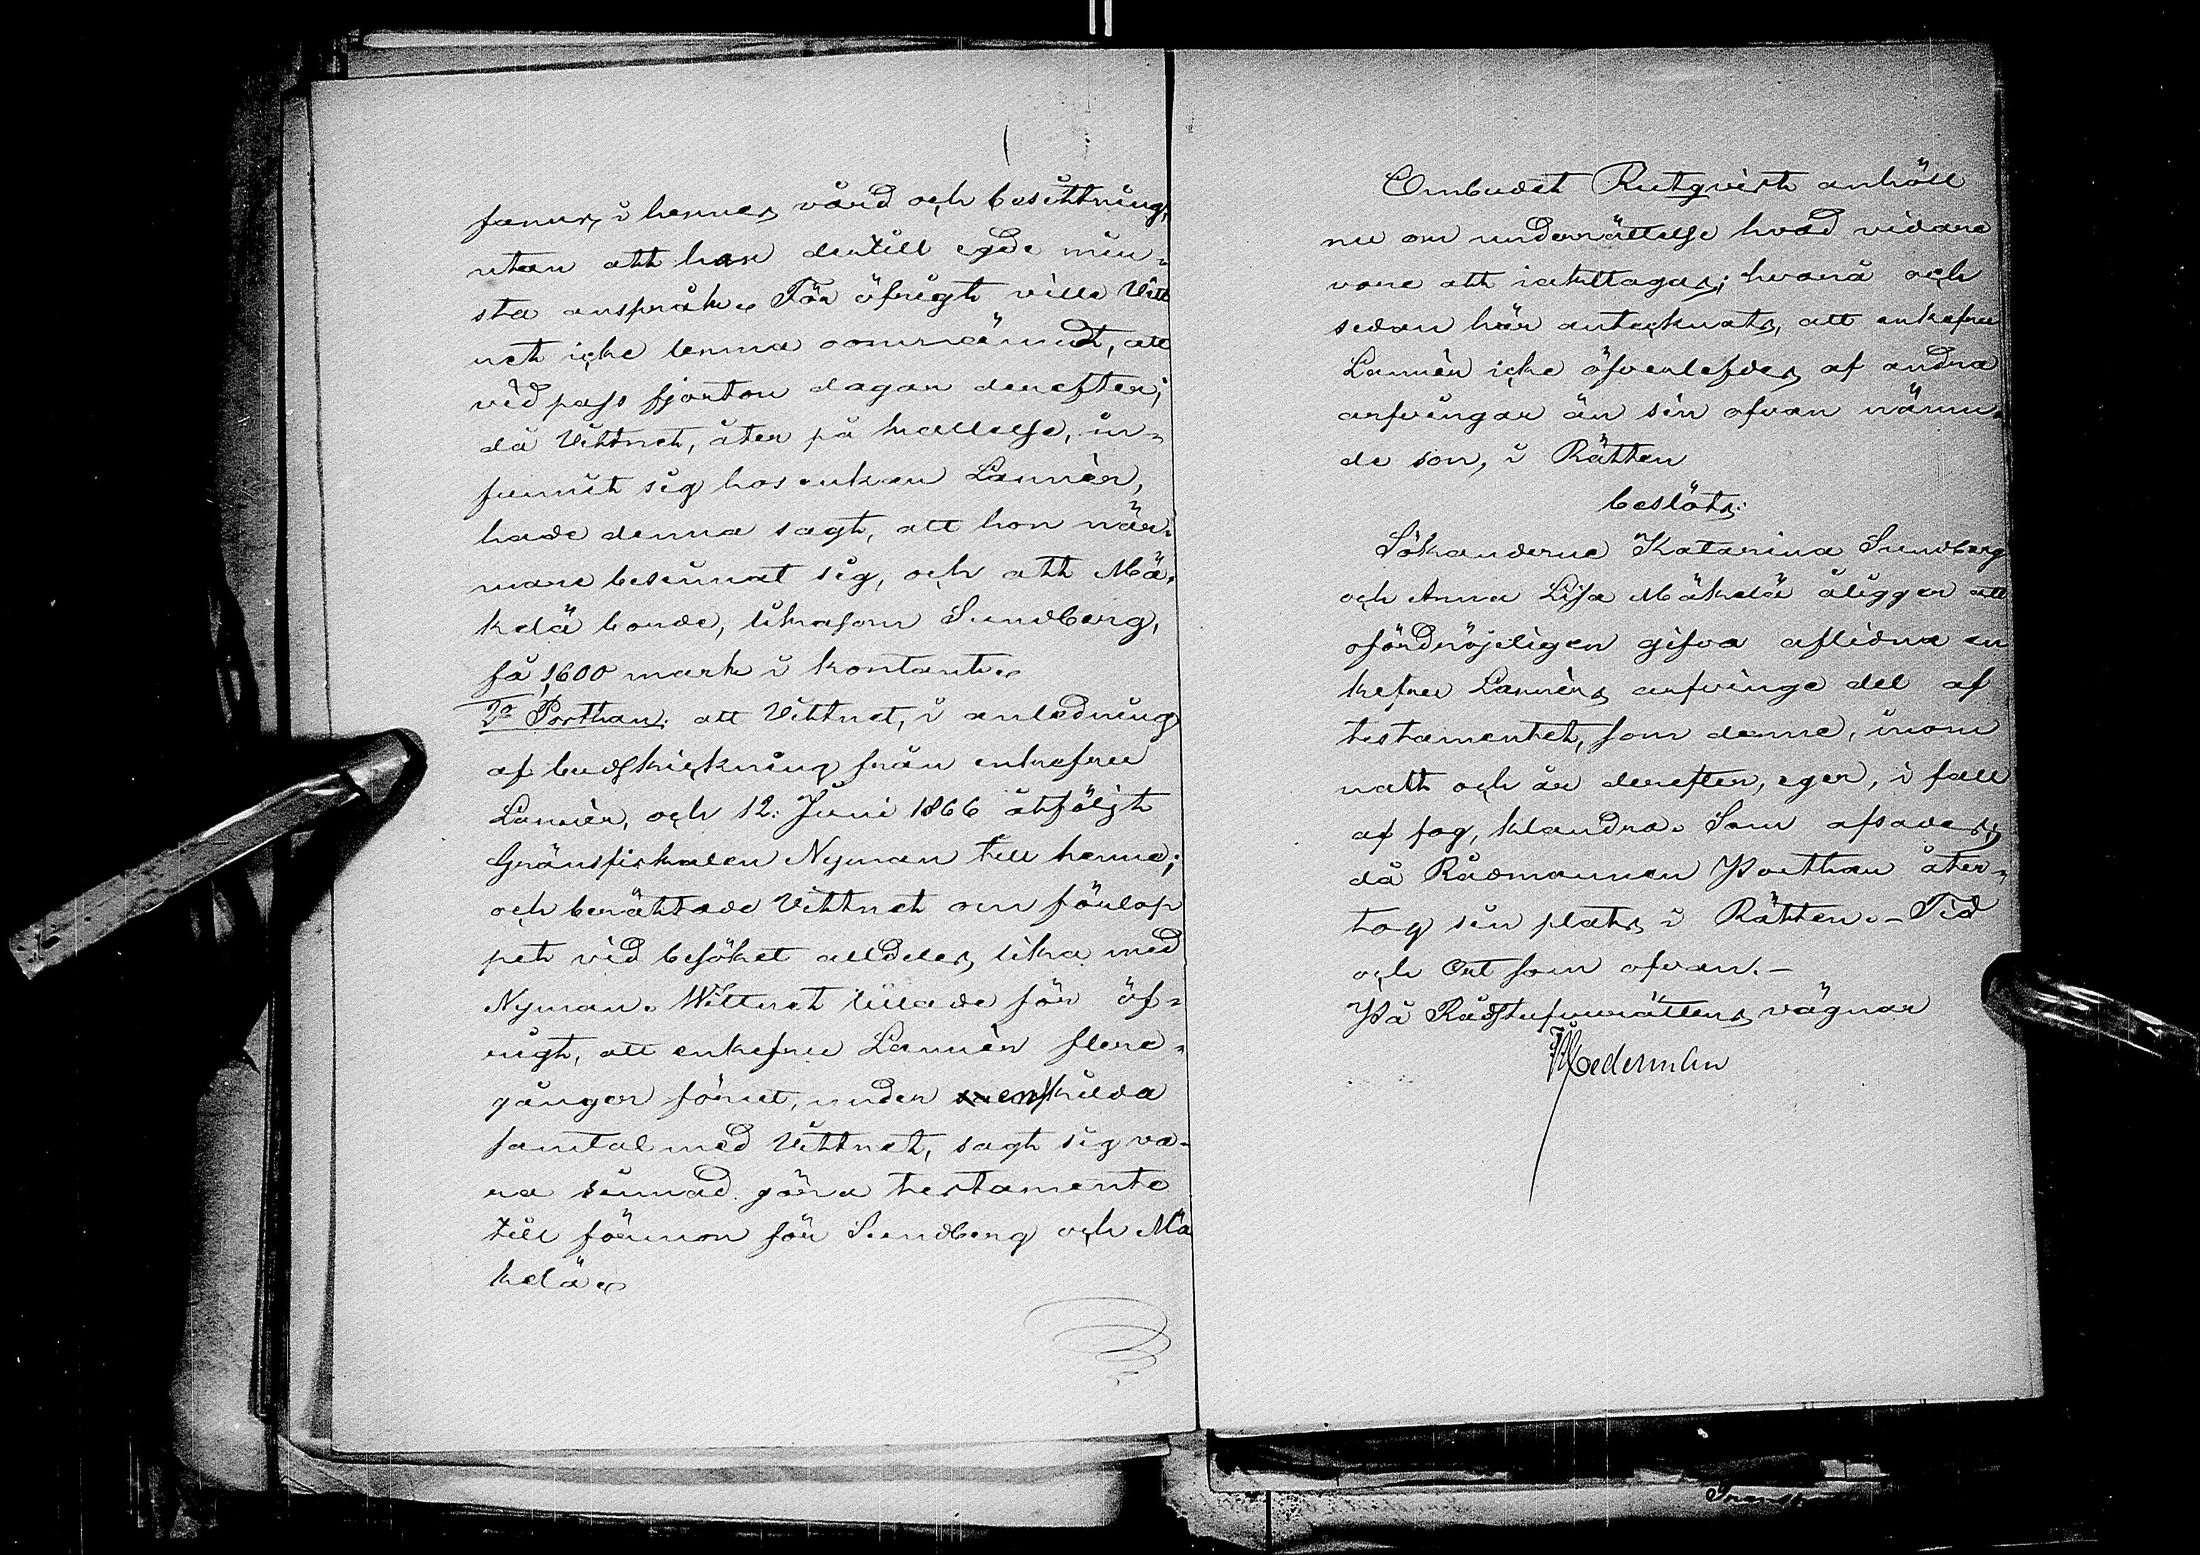 fanns, i hennes vård och besittning,
utan att han dertill egde min-
sta anspråk. För öfrigt ville Vitt
net icke lemna oomnämndt, att
vid pass fjorton dagar derefter,
då Vittnet, åter på kallelse, in-
funnit sig hos enkan Lannèr,
hade denna sagt, att hon när-
mare besinnat sig, och att Mä-
kelä borde, likasom Sundberg,
få 1,600 mark i kontant.
Porthan: att Vittnet, i anledning
af budskickning från enkefru
Lannèr, och 12. Juni 1866 åtföljt
Gränsfiskalen Nyman till henne;
och berättade Vittnet om förlop
pet vid besöket alldeles lika med
Nyman. Wittnet tillade för öf-
rigt, att enkefru Lannèr flere-
gånger förut, under enskilda
samtal med Vittnet, sagt sig va-
ra sinnad göra testamente
till förmon för Sundberg och Mä
kelä.
Ombudet Rutqvist anhöll
nu om underrättelse hvad vidare
vore att iakttagas; hvarå och
sedan här antecknats, att enkefru
Lannèr icke öfverlefdes af andra
arfvingar än sin ofvan nämn-
de son, i Rätten
beslöts:
Sökanderne Katarina Sundberg
och Anna Lisa Mäkelä åligger att
ofördröjeligen gifva aflidna en
kefru Lannèrs arfvinge del af
testamentet, som denne, inom
natt och år derefter, eger, i fall
af fog, klandra. Som afsades;
då Rådmannen Porthan åter-
tog sin plats i Rätten. - Tid
och Ort som ofvan. -
På Rådstufvurättens vägnar